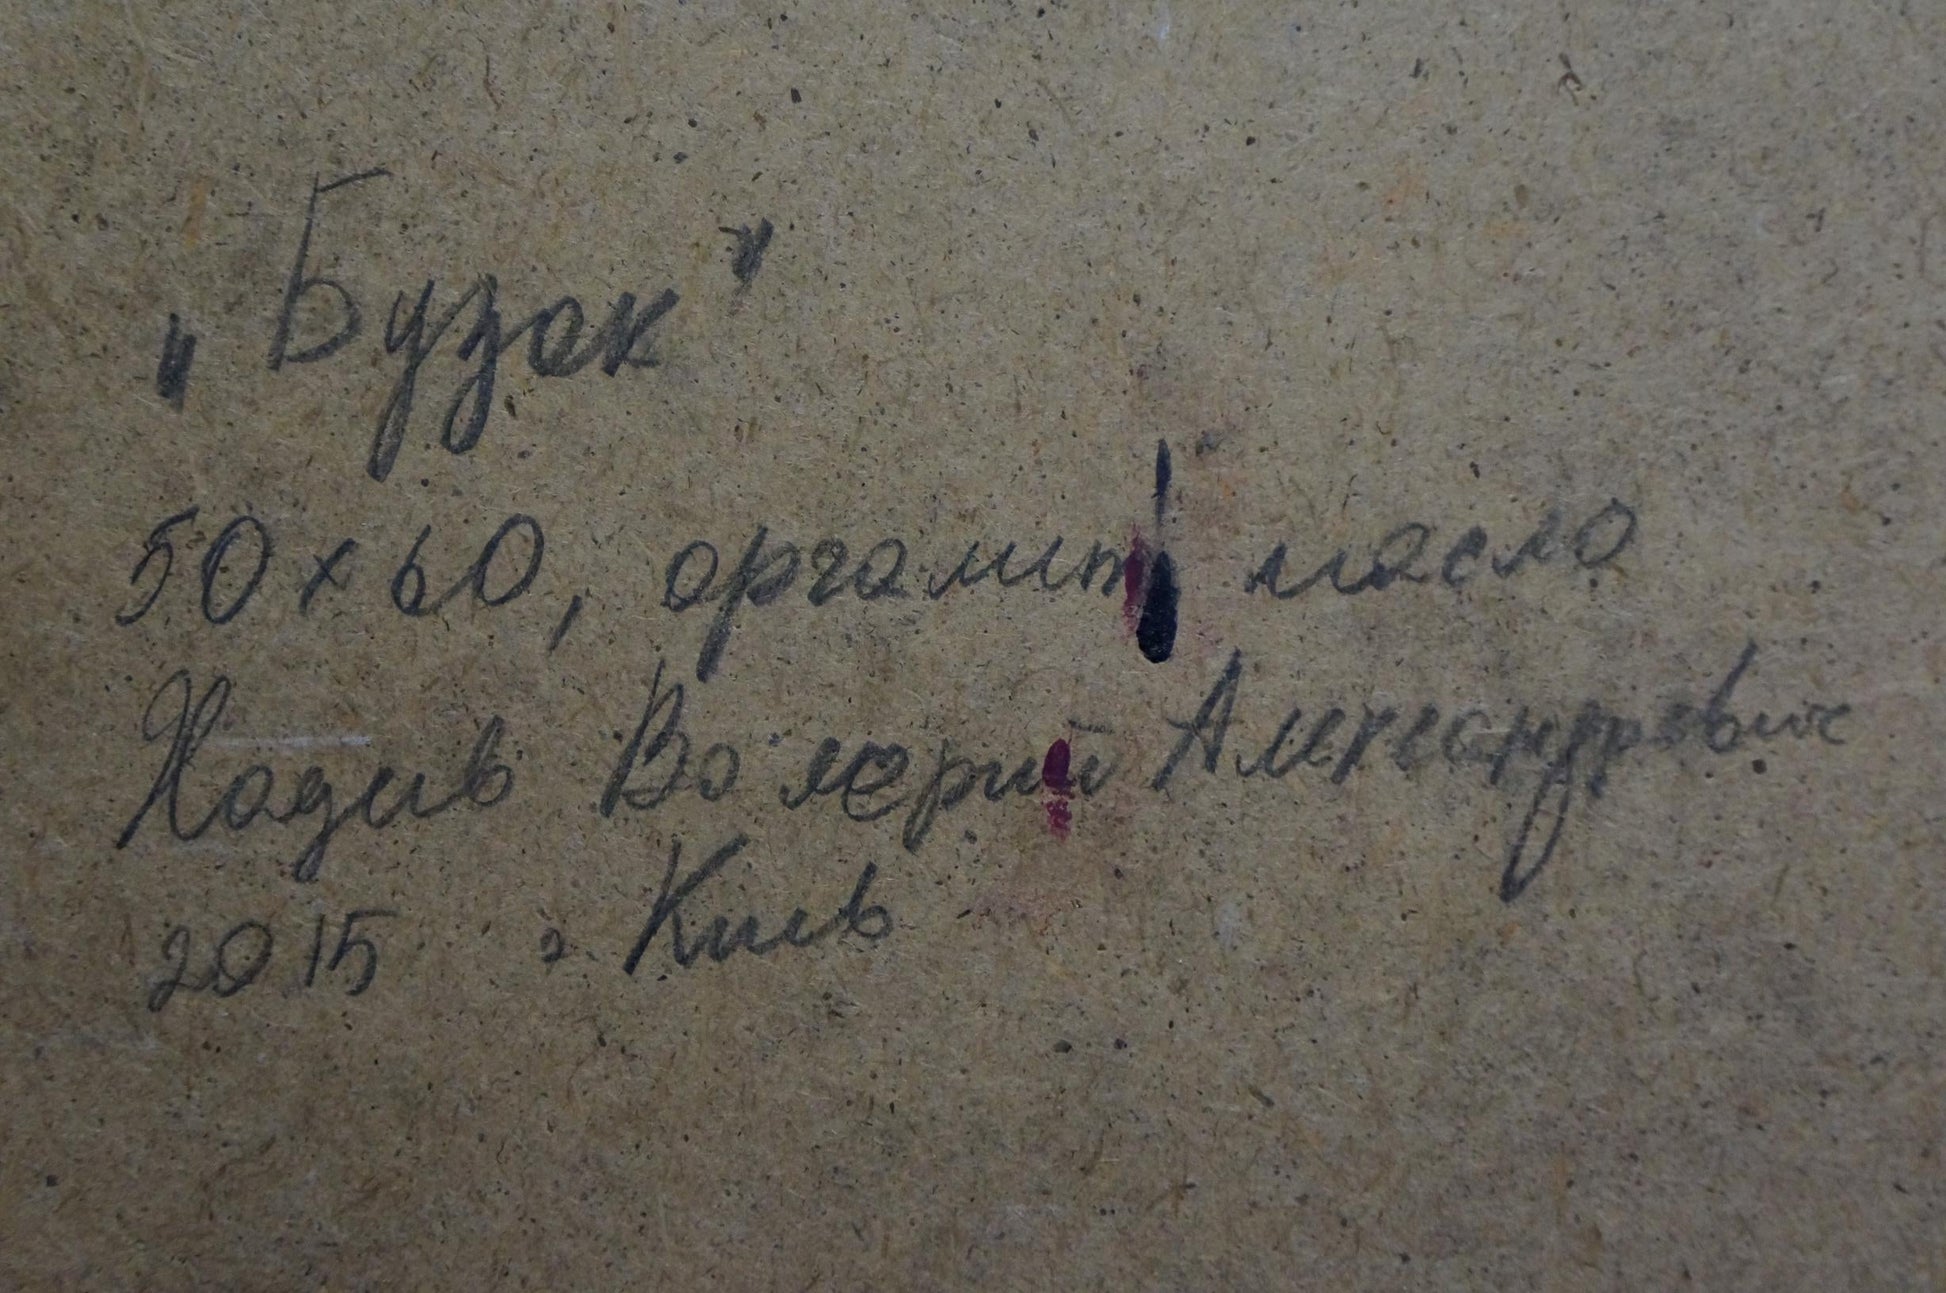 „Бузок"
50х60, оргаліт масло
Надив Валерий Александрович
2015 г. Киев